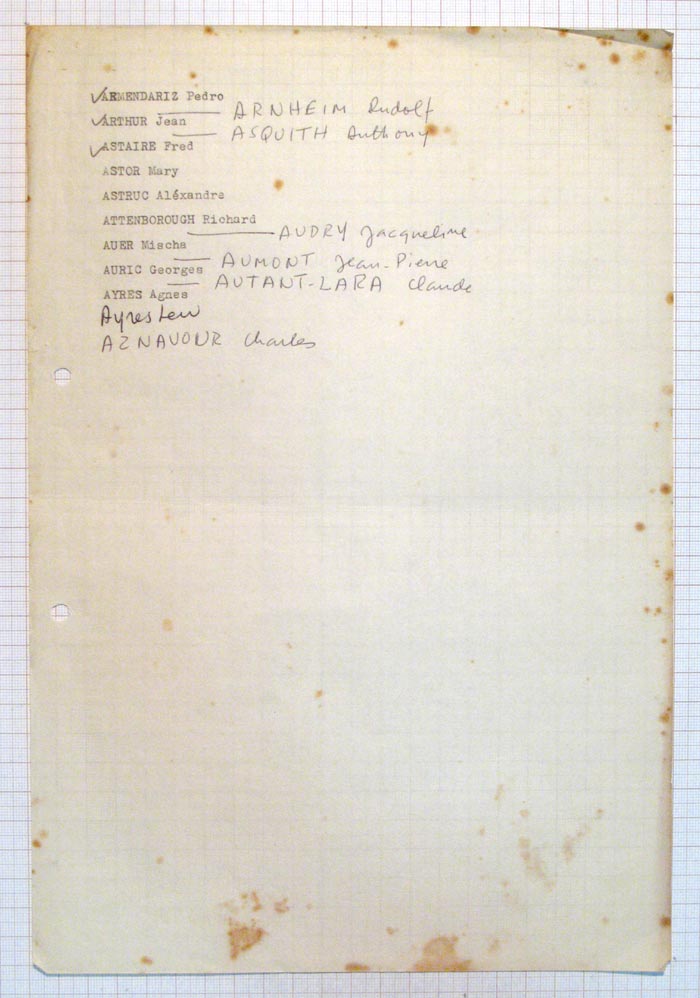 ✓ARMENDARIZ Pedro
ARNHEIM Rudolf
✓ARTHUR Jean
ASQUITH Anthony
✓ASTAIRE Fred
ASTOR Mary
ASTRUC Aléxandre
ATTENBOROUGH Richard
AUDRY Jacqueline
AUER Mischa
AUMONT Jean-Pierre
AURIC Georges
AUTANT-LARA Claude
AYRES Agnes
Ayres Lew
AZNAVOUR Charles